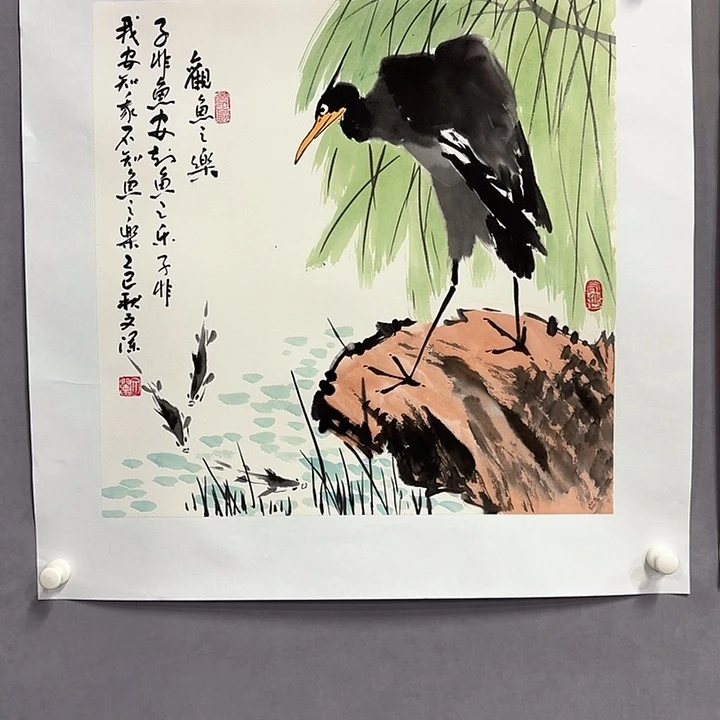 觀魚之樂
子非魚安知魚之乐子非
我安知我不知魚之樂乙巳秋文深